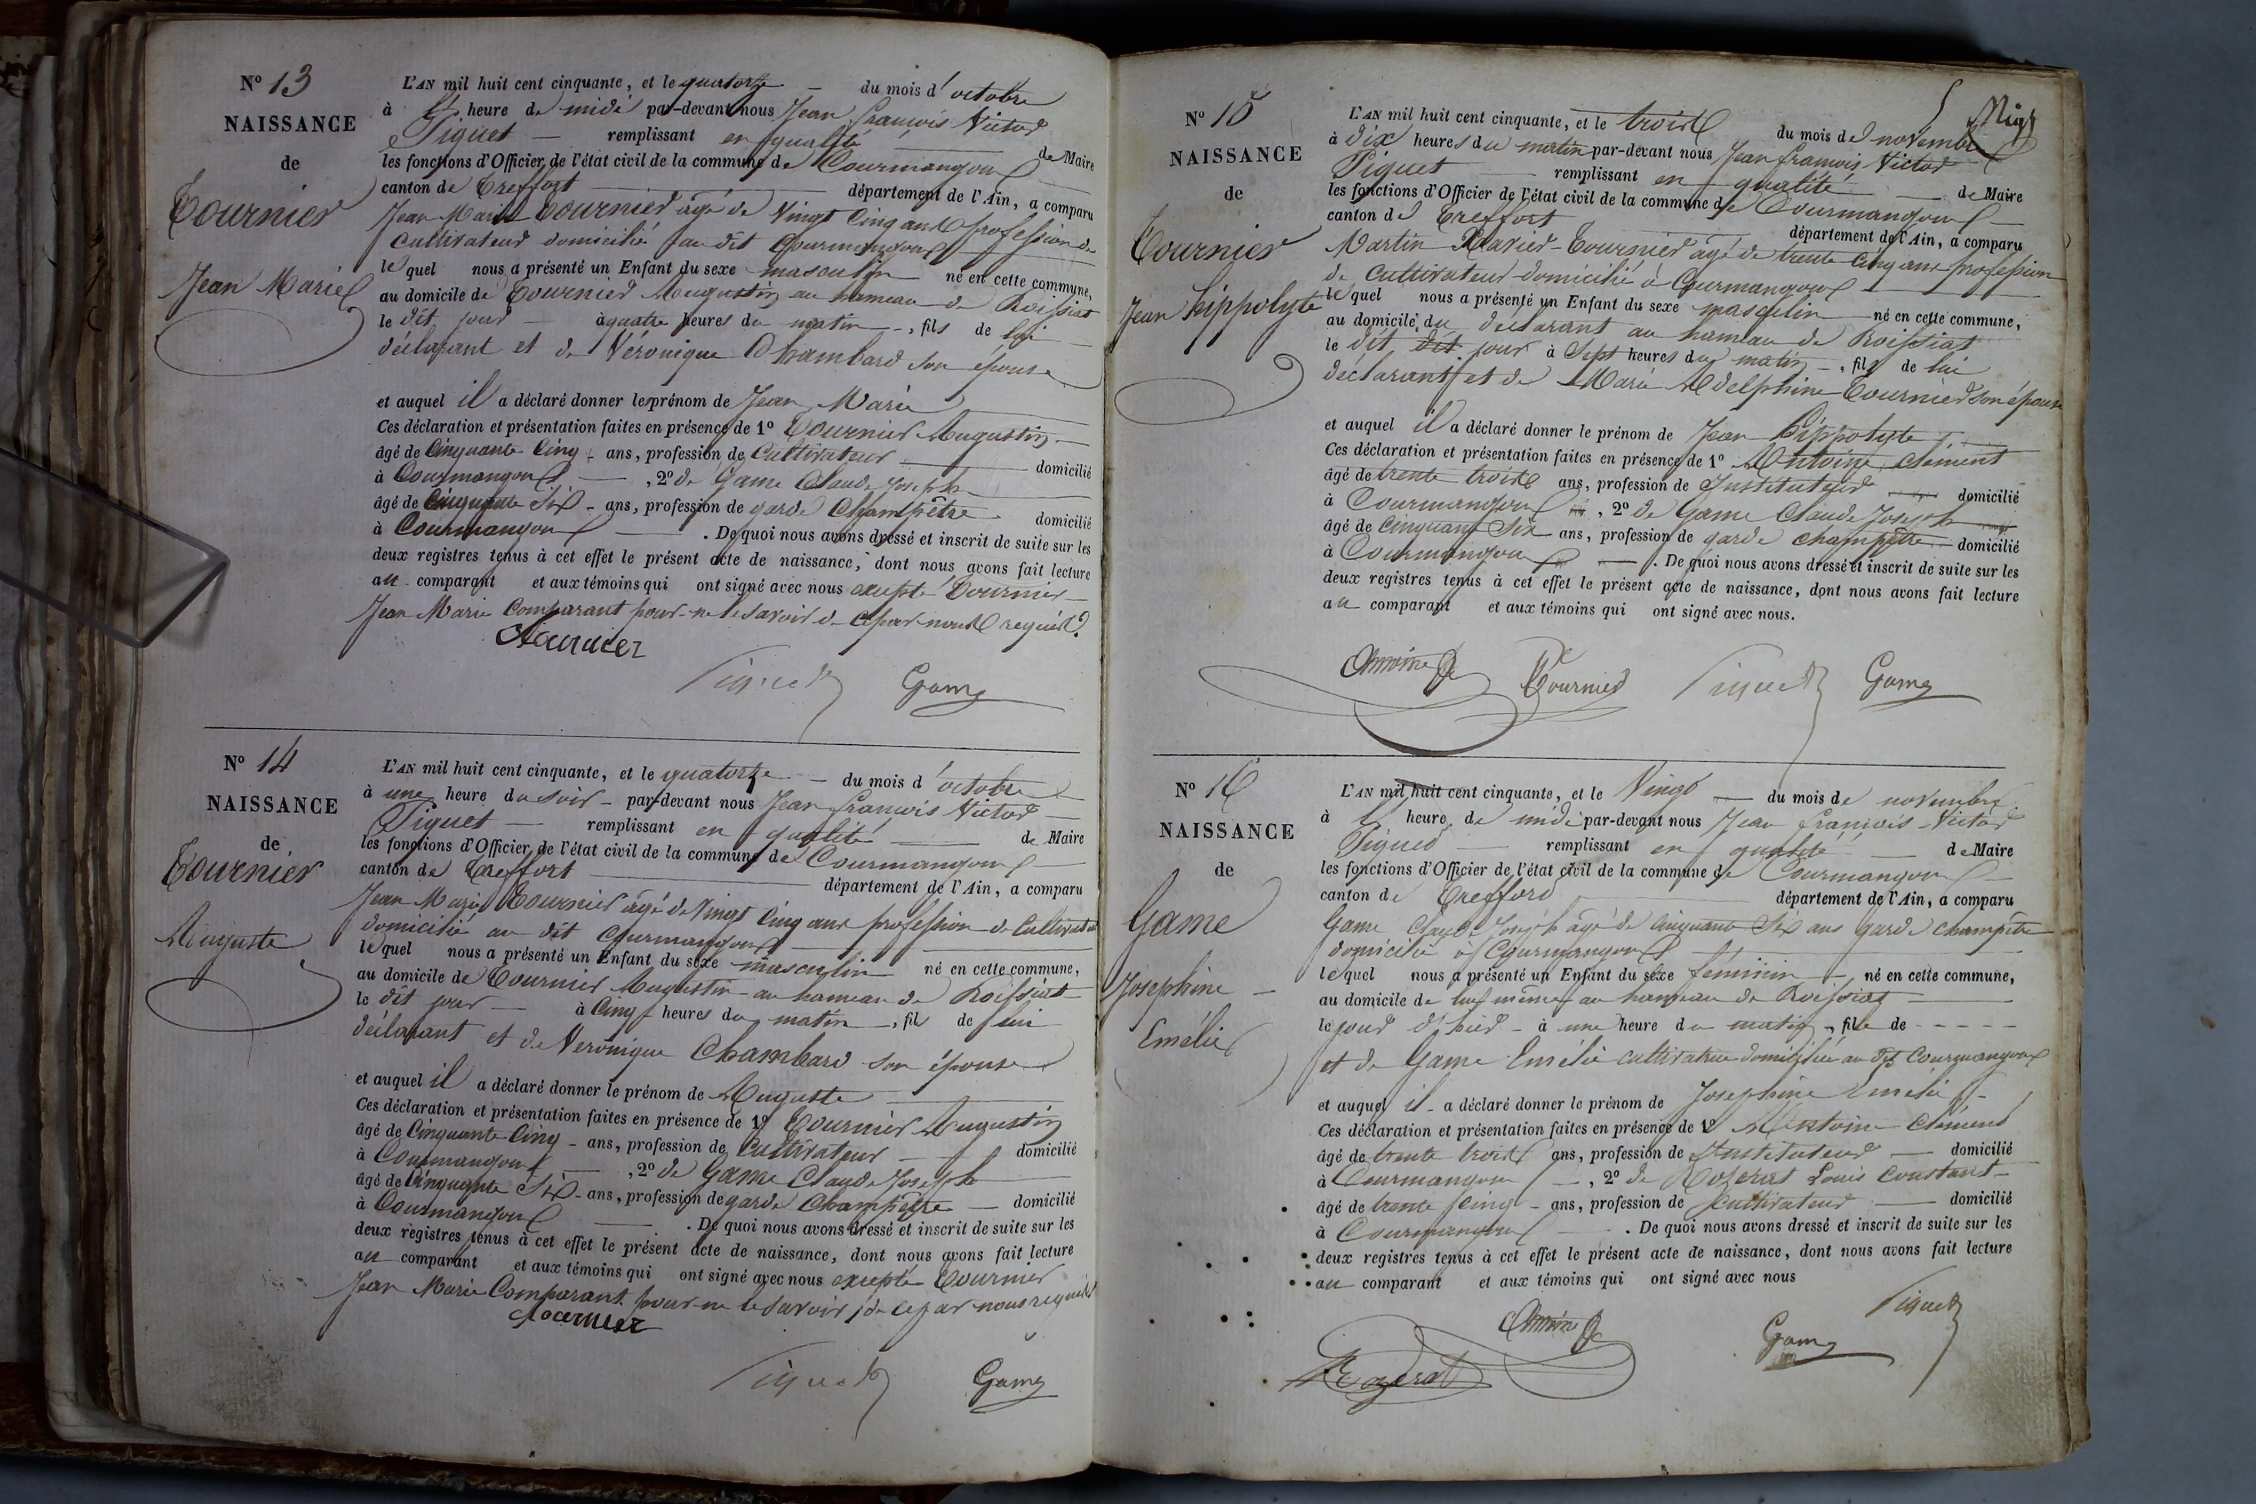 N° 13
NAISSANCE
de
Tournier
Jean Marie
L'AN mil huit cent cinquante, et le quatorze du mois d'octobre
à l' heure de midi par-devant nous Jean francois Victor
Piquet remplissant en qualité de Maire
les fonctions d'Officier de l'état civil de la commune de Courmangoux
canton de Treffort département de l'Ain, a comparu
Jean Marie Tournier âgé de Vingt Cinq ans profession de
cultivateur domicilié au dit Courmangoux
lequel nous a présenté un Enfant du sexe masculin né en cette commune,
au domicile de Tournier Augustin au hameau de Roissiat
le dit jour à quatre heures du matin, fils de lui
déclarant et de Véronique Chambard son épouse
et auquel il a déclaré donner le prénom de Jean Marie
Ces déclaration et présentation faites en présence de 1° Tournier Augustin
âgé de Cinquante Cinq ans, profession de Cultivateur domicilié
à Courmangoux, 2° de Game Claude Joseph
âgé de Cinquante Six ans, profession de garde Champêtre domicilié
à Courmangoux. De quoi nous avons dressé et inscrit de suite sur les
deux registres tenus à cet effet le présent acte de naissance, dont nous avons fait lecture
au comparant et aux témoins qui ont signé avec nous excepté Tournier
Jean Marie Comparant pour ne le savoir de ce par nous requis.
Tournier
Piquet Game
N° 14
NAISSANCE
de
Tournier
Auguste
L'AN mil huit cent cinquante, et le quatorze du mois d'octobre
à une heure du soir par-devant nous Jean francois Victor
Piquet remplissant en qualité de Maire
les fonctions d'Officier de l'état civil de la commune de Courmangoux
canton de Treffort département de l'Ain, a comparu
Jean Marie Tournier âgé de Vingt Cinq ans profession de Cultivateur
domicilié au dit Courmangoux
lequel nous a présenté un Enfant du sexe masculin né en cette commune,
au domicile de Tournier Augustin au hameau de Roissiat
le dit jour à Cinq heures du matin, fils de lui
déclarant et de Véronique Chambard son épouse
et auquel il a déclaré donner le prénom de Auguste
Ces déclaration et présentation faites en présence de 1° Tournier Augustin
âgé de Cinquante Cinq ans, profession de Cultivateur domicilié
à Courmangoux, 2° de Game Claude Joseph
âgé de Cinquante Six ans, profession de garde Champêtre domicilié
à Courmangoux. De quoi nous avons dressé et inscrit de suite sur les
deux registres tenus à cet effet le présent acte de naissance, dont nous avons fait lecture
au comparant et aux témoins qui ont signé avec nous excepté Tournier
Jean Marie Comparant pour ne le savoir de ce par nous requis
Tournier
Piquet Game
5
N° 15
NAISSANCE
de
Tournier
Jean hippolyte
L'AN mil huit cent cinquante, et le trois du mois de novembre
à dix heures du matin par-devant nous Jean francois Victor
Piquet remplissant en qualité de Maire
les fonctions d'Officier de l'état civil de la commune de Courmangoux
canton de Treffort département de l'Ain, a comparu
Martin Xavier Tournier âgé de trente Cinq ans profession
de Cultivateur domicilié à Courmangoux
lequel nous a présenté un Enfant du sexe masculin né en cette commune,
au domicile du déclarant au hameau de Roissiat
le dit dit jour à Sept heures du matin, fils de lui
déclarant et de Marie Adelphine Tournier son épouse
et auquel il a déclaré donner le prénom de Jean hippolyte
Ces déclaration et présentation faites en présence de 1° Antoine Clément
âgé de trente trois ans, profession de Instituteur domicilié
à Courmangoux, 2° de Game Claude Joseph
âgé de Cinquante Six ans, profession de garde champêtre domicilié
à Courmangoux. De quoi nous avons dressé et inscrit de suite sur les
deux registres tenus à cet effet le présent acte de naissance, dont nous avons fait lecture
au comparant et aux témoins qui ont signé avec nous.
Antoine Ce Tournier Piquet Game
N° 16
NAISSANCE
de
Game
Josephine
Emélie
L'AN mil huit cent cinquante, et le Vingt du mois de novembre
à l' heure de midi par-devant nous Jean francois Victor
Piquet remplissant en qualité de Maire
les fonctions d'Officier de l'état civil de la commune de Courmangoux
canton de Treffort département de l'Ain, a comparu
Game Claude Joseph âgé de Cinquante Six ans garde champêtre
domicilié à Courmangoux
lequel nous a présenté un Enfant du sexe féminin né en cette commune,
au domicile de lui même au hameau de Roissiat
le jour d'hier à une heure du matin, fille de - - - - -
et de Game Emélie cultivatrice domiciliée au dit Courmangoux
et auquel il a déclaré donner le prénom de Josephine Emélie
Ces déclaration et présentation faites en présence de 1° Antoine Clément
âgé de trente trois ans, profession de Instituteur domicilié
à Courmangoux, 2° de Rozerat Louis Constant
âgé de trente Cinq ans, profession de Cultivateur domicilié
à Courmangoux. De quoi nous avons dressé et inscrit de suite sur les
deux registres tenus à cet effet le présent acte de naissance, dont nous avons fait lecture
au comparant et aux témoins qui ont signé avec nous
Antoine Ce Piquet
Rozerat Game